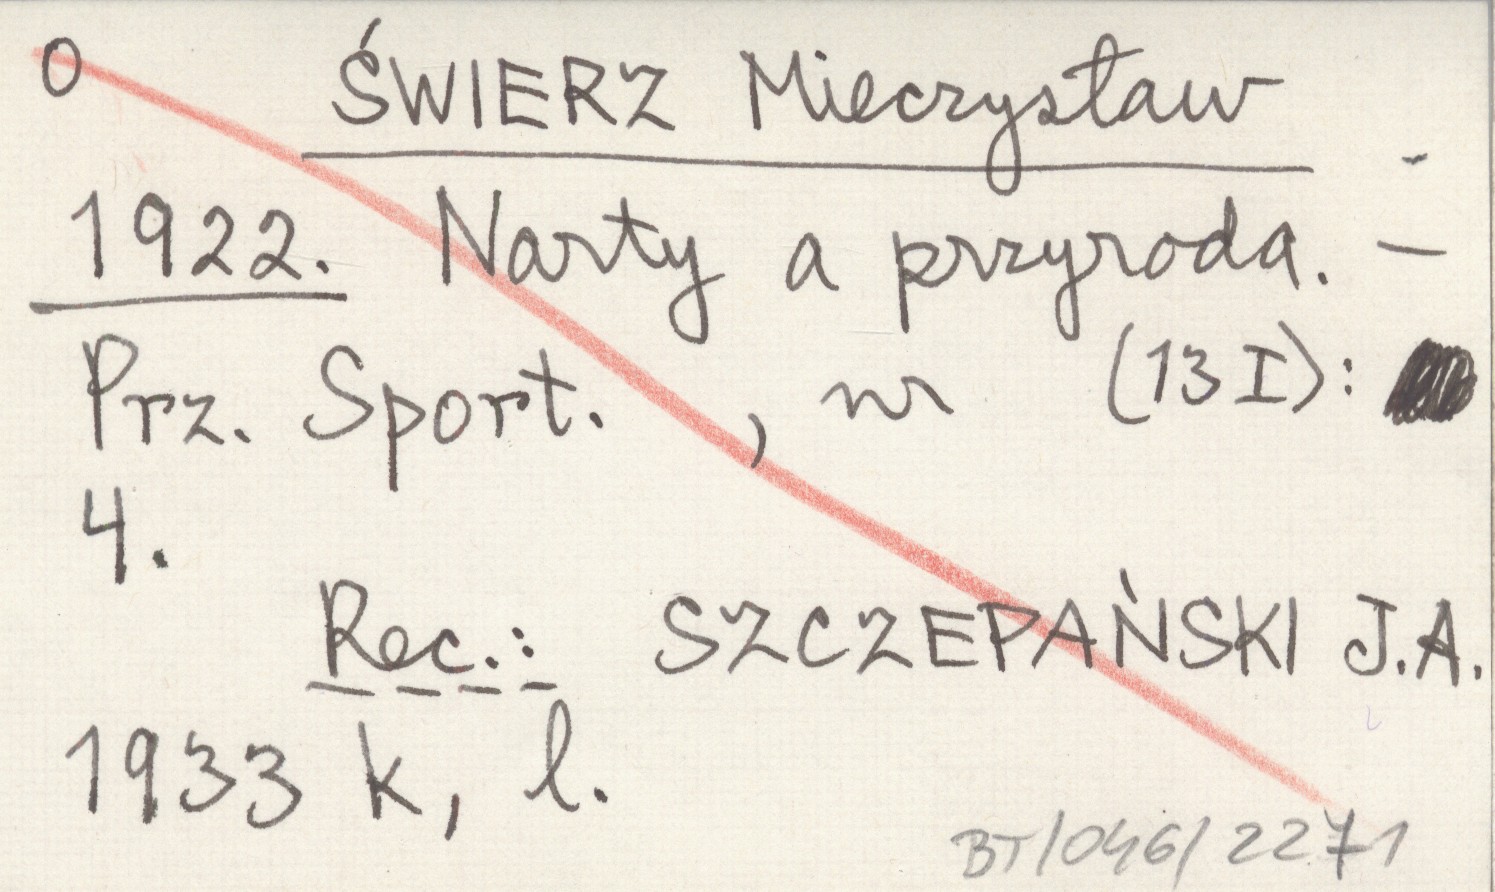 O ŚWIERZ Mieczysław
1922. Narty a przyroda. —
Prz. Sport. , nr (13 I):
4.
Rec.: SZCZEPAŃSKI J.A.
1933 k, l.
BT/046/2271